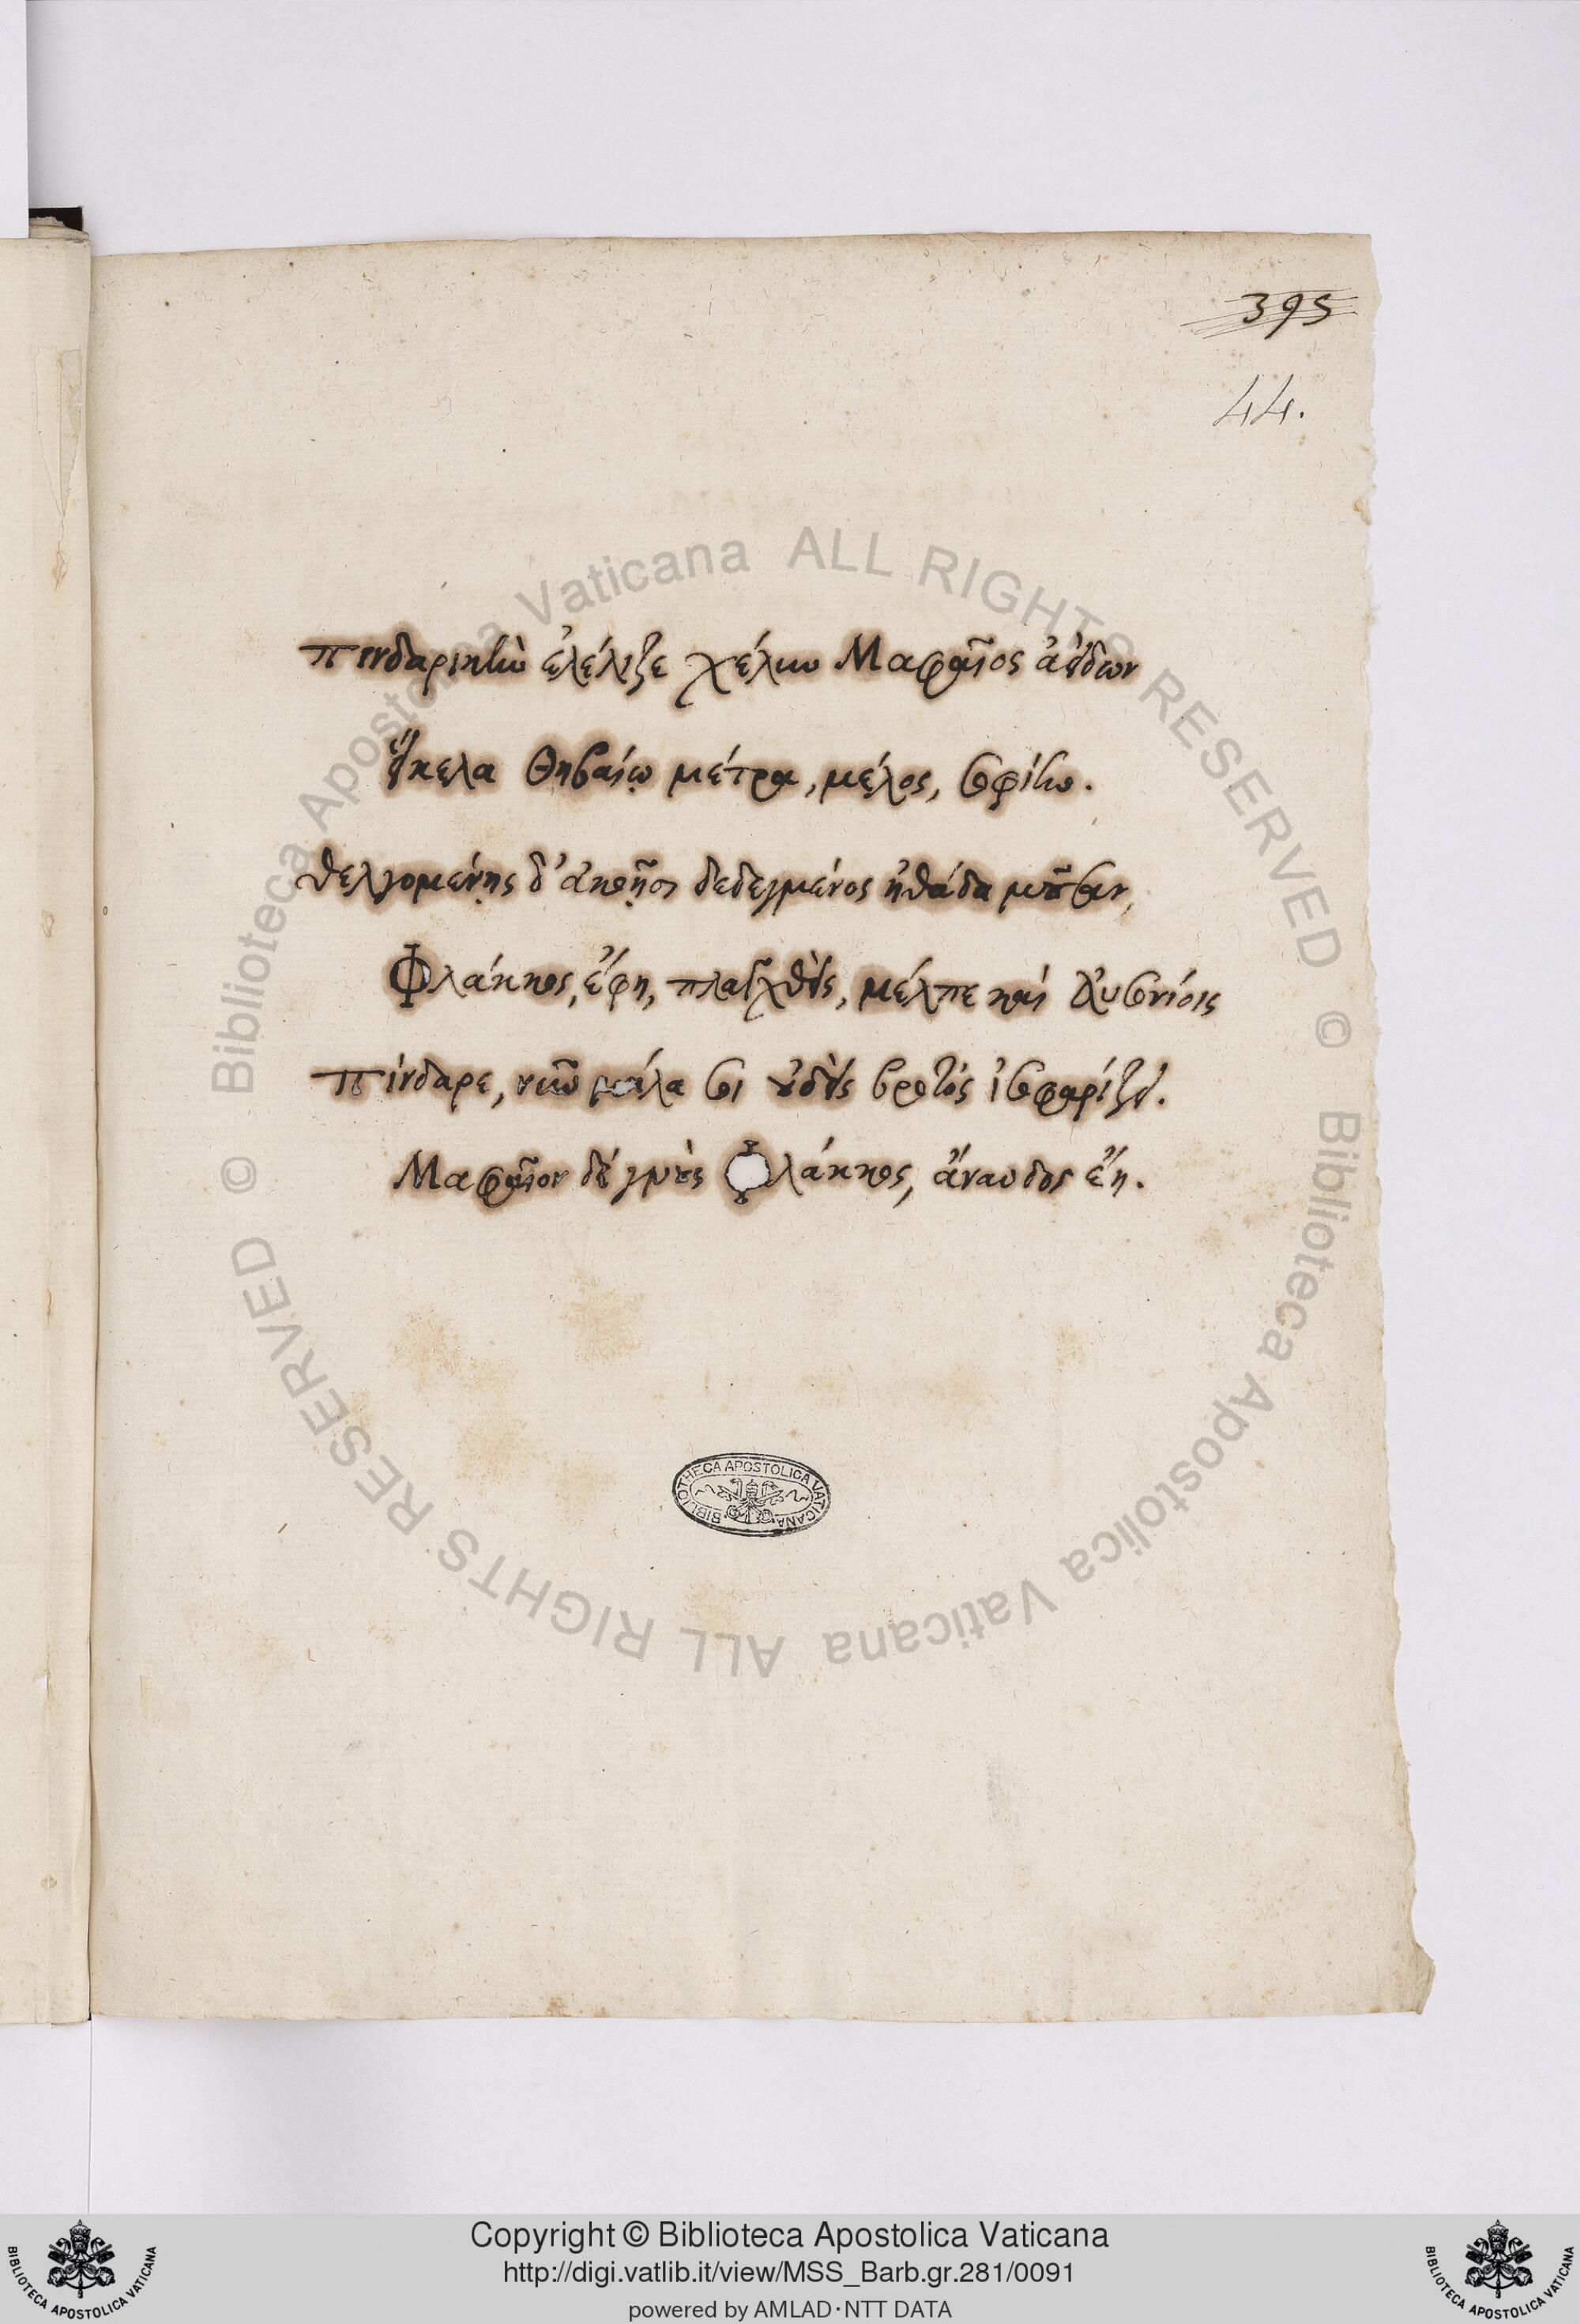 395
44.
Πινδαρικὴν ἐλέλιξε χέλιν Μαφαῖος ἀείδων
εἴκελα Θηβαίῳ μέτρα, μέλος, σοφίην.
θελγομένης δ' ἀκοῇσι δεδεγμένος ἠθάδα μοῦσαν,
Φλάκκος, ἔφη, πλαγχθεὶς, μέλπε καὶ Αὐσονίοις
Πίνδαρε, νῦν μάλα σοι οὐδεὶς βροτός ἰσοφαρίζει.
Μαφαῖον δὲ γνοὺς Φλάκκος, ἄναυδος ἔη.
BIBLIOTHECA APOSTOLICA VATICANA
© Biblioteca Apostolica Vaticana ALL RIGHTS RESERVED
© Biblioteca Apostolica Vaticana ALL RIGHTS RESERVED
Copyright © Biblioteca Apostolica Vaticana
http://digi.vatlib.it/view/MSS_Barb.gr.281/0091
powered by AMLAD·NTT DATA
BIBLIOTECA APOSTOLICA VATICANA
BIBLIOTECA APOSTOLICA VATICANA